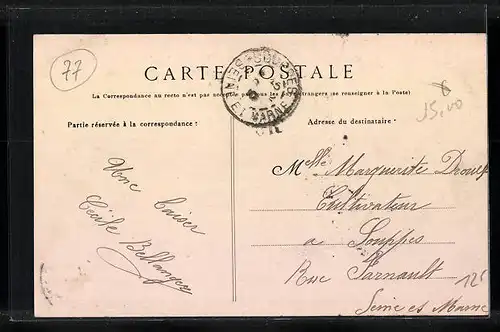 77
CARTE POSTALE
SOUPPES
SEINE ET MARNE
La Correspondance au recto n'est pas acceptée par tous les pays étrangers (se renseigner à la Poste)
15,00
Partie réservée à la correspondance
Adresse du destinataire
Une baiser
Cécile Bellanger
Melle Marguerite
Cultivateur
a Souppes
Rue
Seine et Marne
12